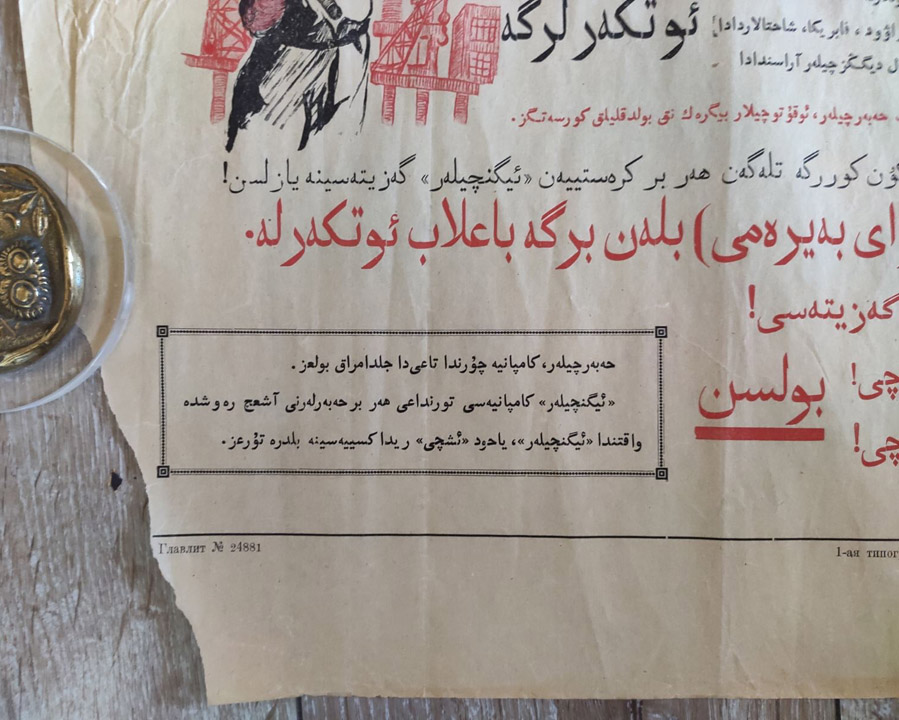 ئوتكەرلرگە
اۋود، فابريكا، شاحتالاردادا!
ديگگزچيلەر آراسندادا
حەبەرچيلەر، ئوقۇتوچيلار بيگرەك نق بولدقليلق كورسەتگز.
كوررگە تلەگەن هەر بر كرەستييەن «ئيگنچيلەر» گەزيتەسينە يازلسن!
اى بەيرەمى) بلەن برگە باعلاب ئوتكەرلە.
گەزيتەسى!
چى!
بولسن
چى!
حەبەرچيلەر، كامپانيە چۇرندا تاعىدا جلدامراق بولعز.
«ئيگنچيلەر» كامپانيەسى تورنداعى هەر بر حەبەرلەرنى آشعچ رەوشدە
واقتندا «ئيگنچيلەر»، ياحود «ئشچى» ريداكسييەسينە بلدرە تۇرعز.
Главлит № 24881
1-ая типог